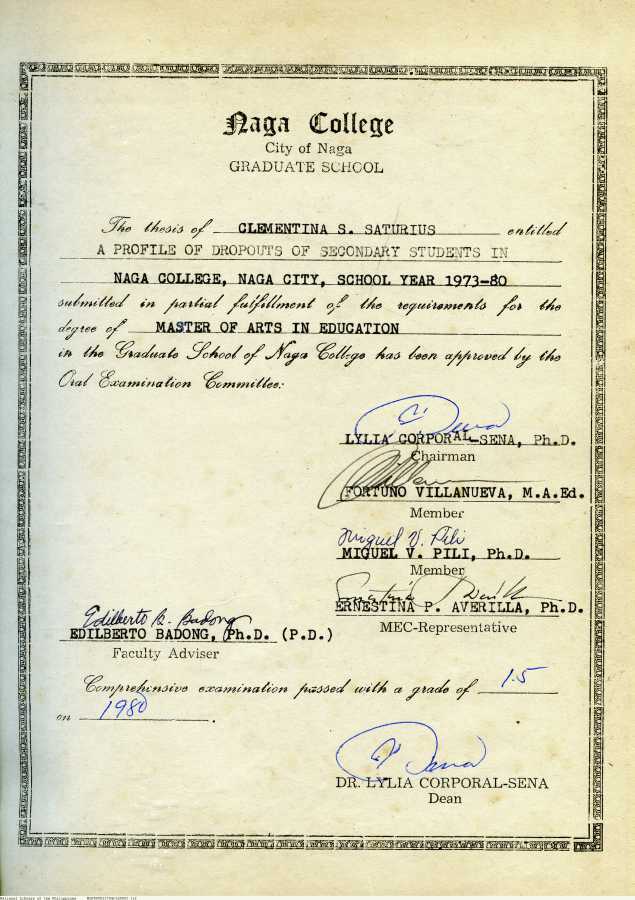 Naga College
City of Naga
GRADUATE SCHOOL
The thesis of CLEMENTINA S. SATURIUS entitled
A PROFILE OF DROPOUTS OF SECONDARY STUDENTS IN
NAGA COLLEGE, NAGA CITY, SCHOOL YEAR 1973-80
submitted in partial fulfillment of the requirements for the
degree of MASTER OF ARTS IN EDUCATION
in the Graduate School of Naga College has been approved by the
Oral Examination Committee:
LYLIA CORPORAL-SENA, Ph.D.
Chairman
FORTUNO VILLANUEVA, M.A.Ed.
Member
Miguel V. Pili
MIGUEL V. PILI, Ph.D.
Member
ERNESTINA P. AVERILLA, Ph.D.
MEC-Representative
Edilberto R. Badong
EDILBERTO BADONG, Ph.D. (P.D.)
Faculty Adviser
Comprehensive examination passed with a grade of 1.5
on 1980.
DR. LYLIA CORPORAL-SENA
Dean
National Library of the Philippines